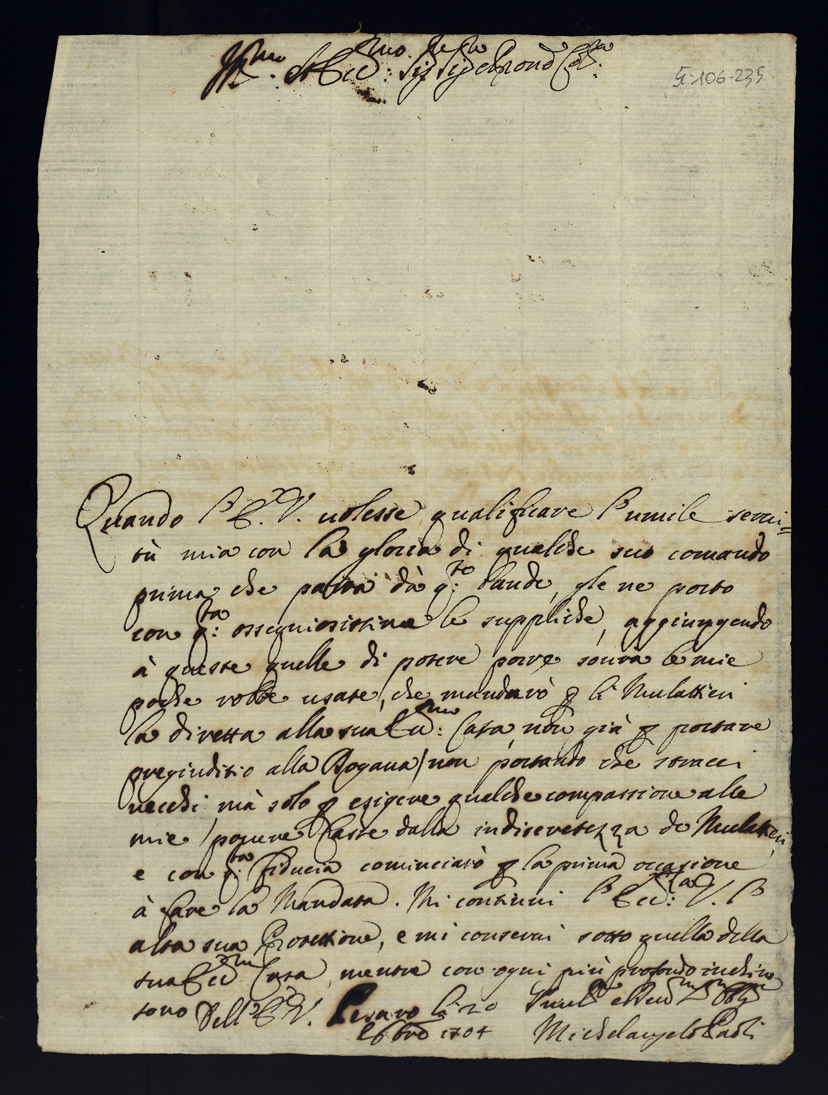 Ill.mo et Ecc.mo Sig.
I-106-235
Quando l'E. V. uolesse qualificare l'umile serui=
tù mia con la gloria di qualche suo comando
prima che parta dà q.te bande, gle ne porto
con q.ta ossequiosissime le suppliche, aggiungendo
à queste quelle di potere porre soura le mie
poche robbe usate, che manderò p li Mulattieri
la diretta alla sua Ecc.ma Casa, non già p portare
pregiuditio alla Dogana, non portando che stracci
uecchi mà solo p esigere qualche compassione alle
mie pouere Casse dalla indiscretezza de Mulattieri
e con q.ta fiducia cominciarò p la prima occasione
à fare la Mandata. Mi continui l'Ecc.za V. l'
alta sua Protettione, e mi conserui sotto quella della
sua Ecc.ma Casa, mentre con ogni più profondo inchino
sono Dell'E. V. Pesaro li 20
1704 Michelangelo Paoli